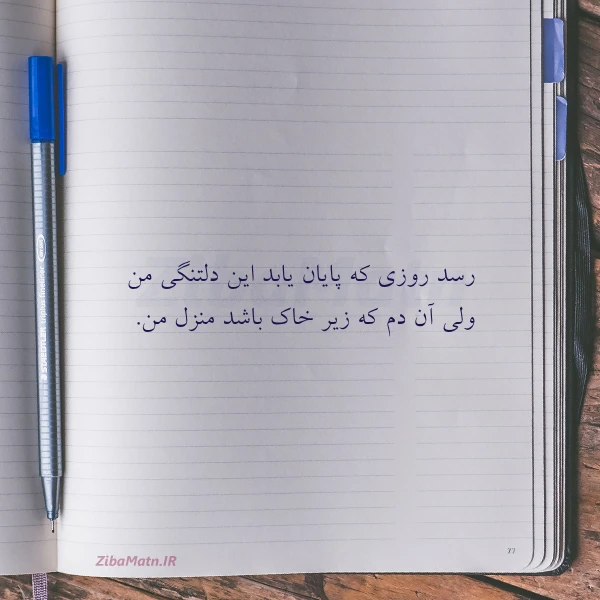 رسد روزی که پایان یابد این دلتنگی من
ولی آن دم که زیر خاک باشد منزل من.
ZibaMatn.IR